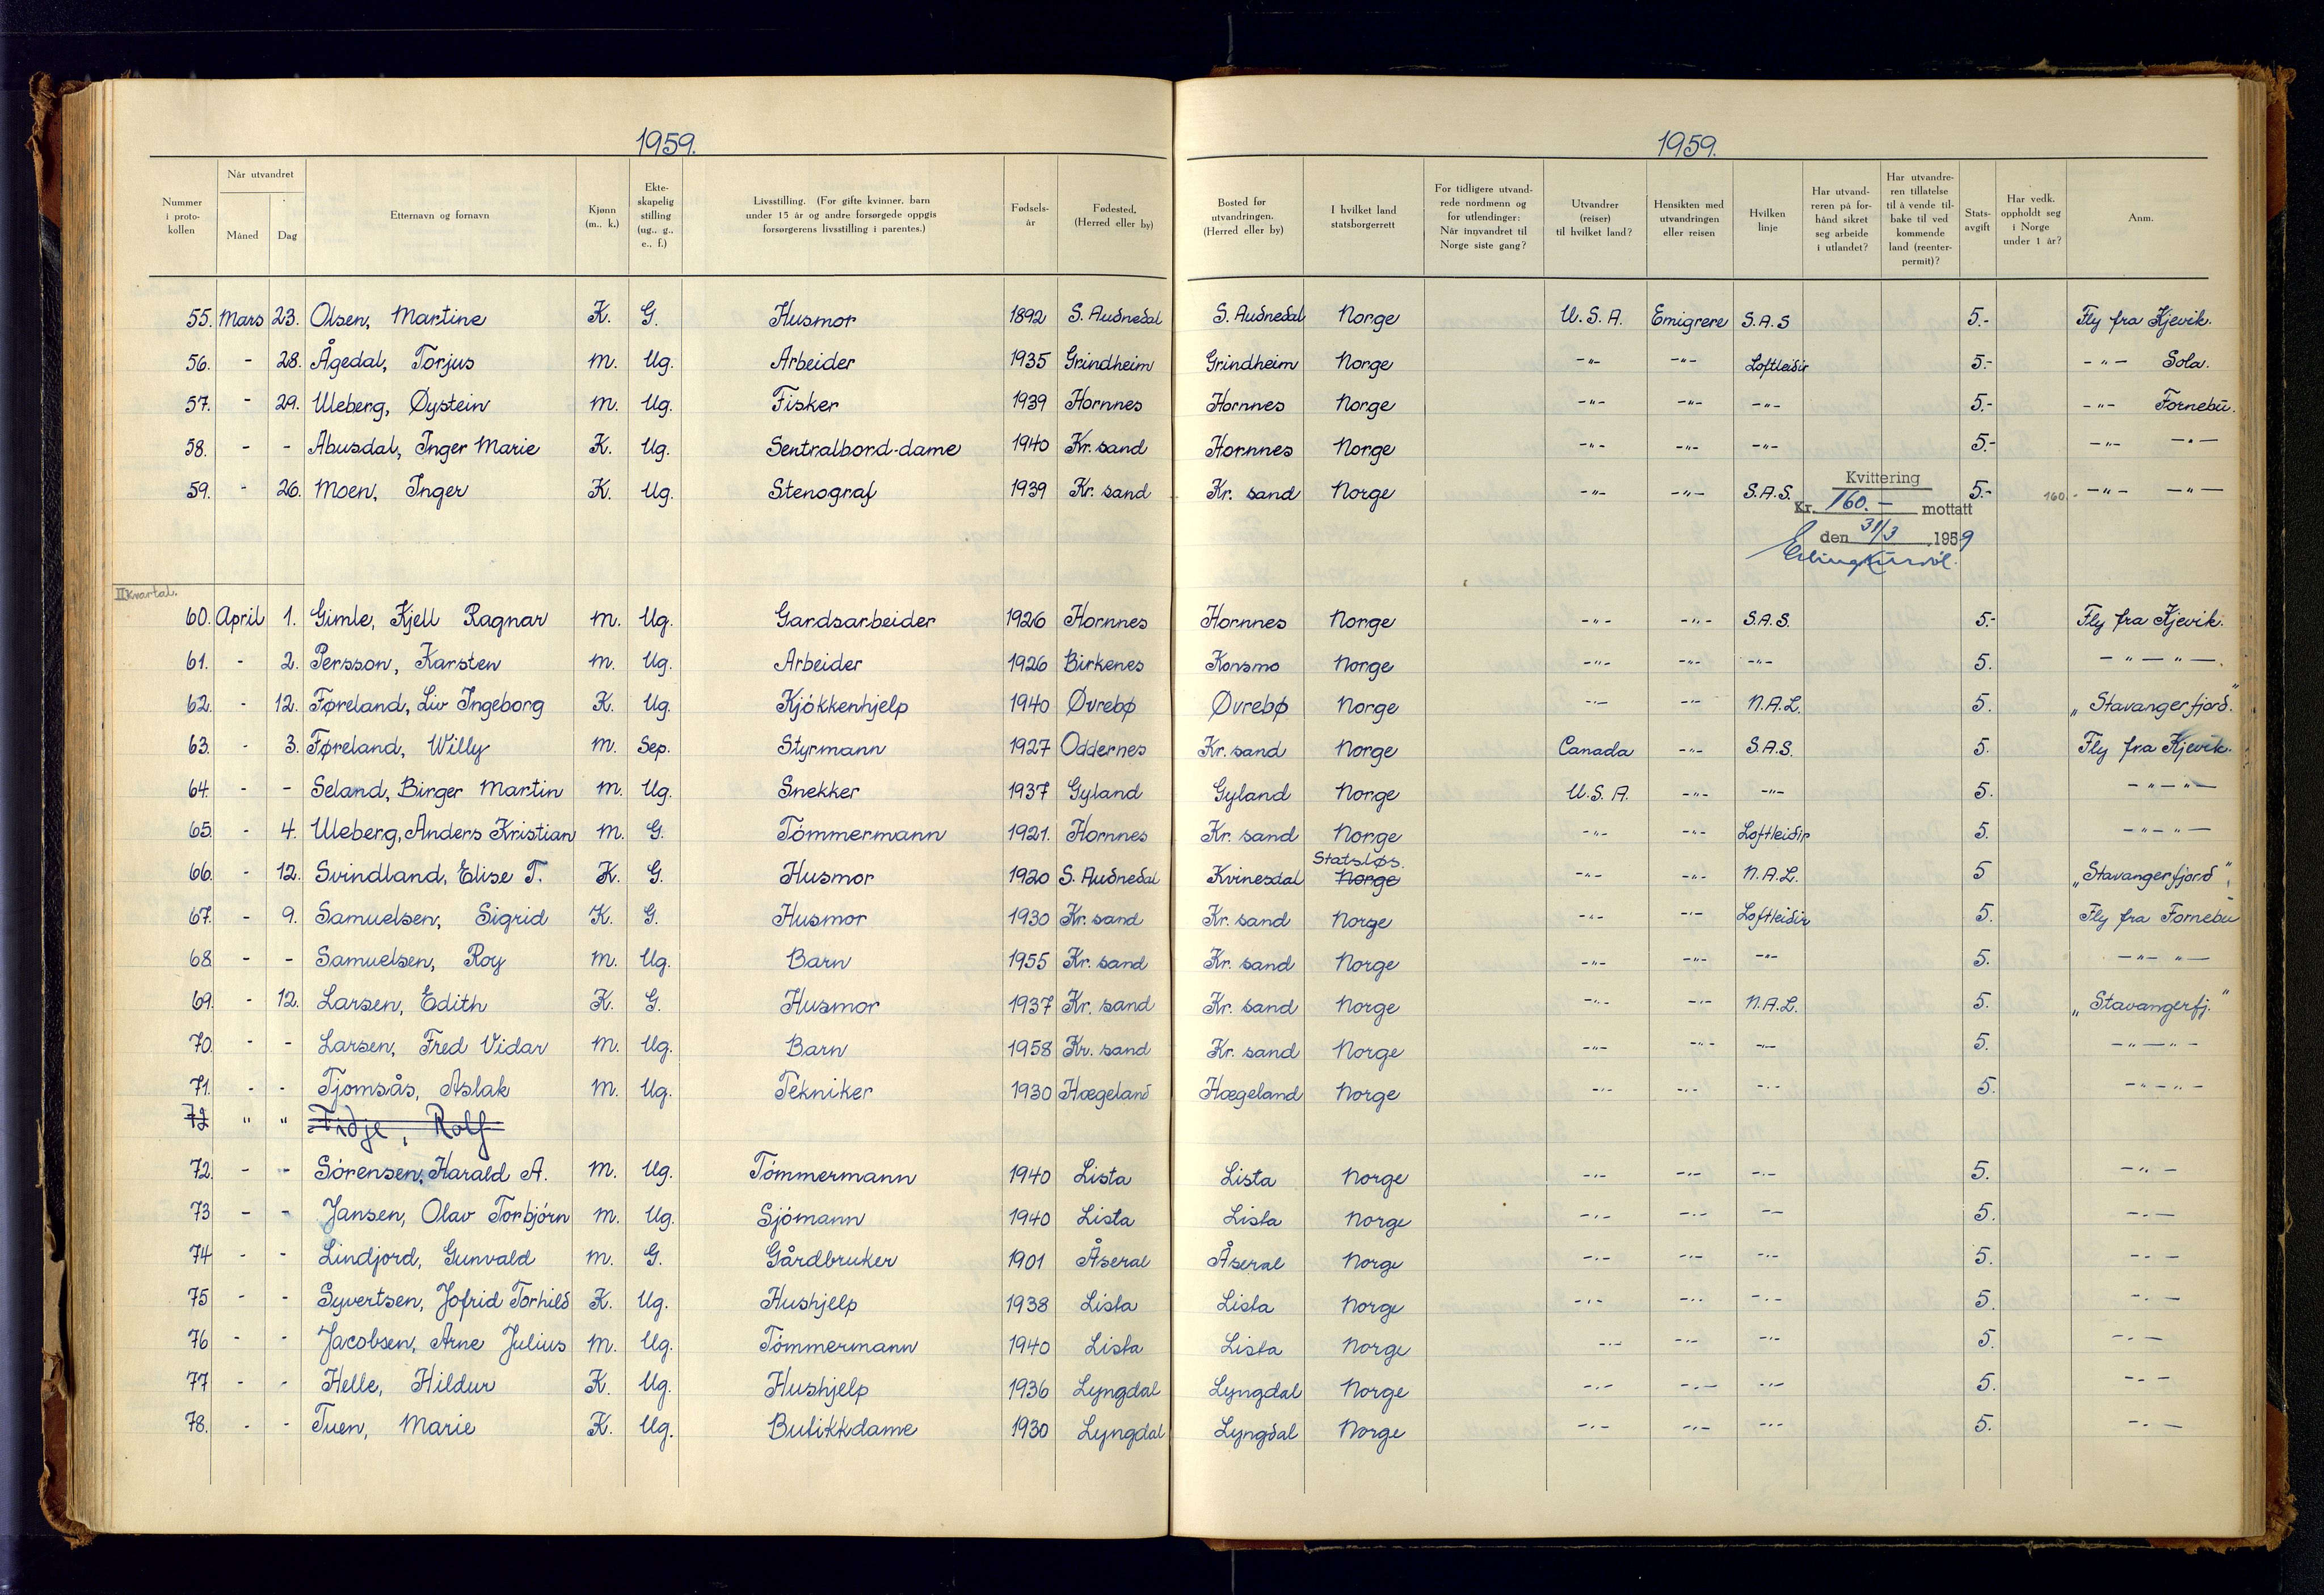 1959.
1959.
Nummer i protokollen | Når utvandret Måned | Dag | Etternavn og fornavn | Kjønn (m., k.) | Ekteskapelig stilling (ug., g., e., f.) | Livsstilling. (For gifte kvinner, barn under 15 år og andre forsørgede oppgis forsørgerens livsstilling i parentes.) | Fødselsår | Fødested, (Herred eller by) | Bosted før utvandringen. (Herred eller by) | I hvilket land statsborgerrett | For tidligere utvandrede nordmenn og for utlendinger: Når innvandret til Norge siste gang? | Utvandrer (reiser) til hvilket land? | Hensikten med utvandringen eller reisen | Hvilken linje | Har utvandreren på forhånd sikret seg arbeide i utlandet? | Har utvandreren tillatelse til å vende tilbake til ved kommende land (reenterpermit)? | Statsavgift | Har vedk. oppholdt seg i Norge under 1 år? | Anm.
55. Mars 23. Olsen, Martine K. G. Husmor 1892 S. Audnedal S. Audnedal Norge U.S.A. Emigrere S.A.S 5.- Fly fra Kjevik.
56. - 28. Ågedal, Torjus m. Ug. Arbeider 1935 Grindheim Grindheim Norge -"- -"- Loftleidir 5.- -"- Sola.
57. - 29. Uleberg, Øystein m. Ug. Fisker 1939 Hornnes Hornnes Norge -"- -"- -"- 5.- -"- Fornebu.
58. - - Abusdal, Inger Marie K. Ug. Sentralbord-dame 1940 Kr. sand Hornnes Norge -"- -"- -"- 5.- -"- -"-
59. - 26. Moen, Inger K. Ug. Stenograf 1939 Kr. sand Kr. sand Norge -"- -"- S.A.S. 5.- 160.- -"- -"-
Kvittering
Kr. 160.- mottatt
den 31/3 1959
II Kvartal.
60. April 1. Gimle, Kjell Ragnar m. Ug. Gardsarbeider 1926 Hornnes Hornnes Norge -"- -"- S.A.S. 5.- Fly fra Kjevik.
61. - 2. Persson, Karsten m. Ug. Arbeider 1926 Birkenes Konsmo Norge -"- -"- -"- 5. -"-"-
62. - 12. Føreland, Liv Ingeborg K. Ug. Kjökkenhjelp 1940 Øvrebø Øvrebø Norge -"- -"- N.A.L. 5. „Stavangerfjord."
63. - 3. Føreland, Willy m. Sep. Styrmann 1927 Oddernes Kr. sand Norge Canada -"- S.A.S. 5. Fly fra Kjevik.
64. - - Seland, Birger Martin m. Ug. Snekker 1937 Gyland Gyland Norge U.S.A. -"- -"- 5. -"-"-
65. - 4. Uleberg, Anders Kristian m. G. Tömmermann 1921. Hornnes Kr. sand Norge -"- -"- Loftleidir 5. -"-"-
Statsløs.
66. - 12. Svindland, Elise T. K. G. Husmor 1920 S. Audnedal Kvinesdal Norge -"- -"- N.A.L. 5 „Stavangerfjord"
67. - 9. Samuelsen, Sigrid K. G. Husmor 1930 Kr. sand Kr. sand Norge -"- -"- Loftleidir 5. Fly fra Fornebu
68 - - Samuelsen, Roy m. Ug. Barn 1955 Kr. sand Kr. sand Norge -"- -"- -"- 5. -"- "-
69. - 12. Larsen, Edith K. G. Husmor 1937 Kr. sand Kr. sand Norge -"- -"- N.A.L. 5. „Stavangerfj."
70. - - Larsen, Fred Vidar m. Ug. Barn 1958 Kr. sand Kr. sand Norge -"- -"- -"- 5. -"-"-
71. - - Tjomsås, Aslak m. Ug. Tekniker 1930 Hægeland Hægeland Norge -"- -"- -"- 5. -"-"-
72 " " Fidje, Rolf
72. - - Sörensen, Harald A. m. Ug. Tömmermann 1940 Lista Lista Norge -"- -"- -"- 5. -"-
73 - - Jansen, Olav Torbjörn m. Ug. Sjömann 1940 Lista Lista Norge -"- -"- -"- 5. -"-
74 - - Lindjord, Gunvald m. G. Gårdbruker 1901 Åseral Åseral Norge -"- -"- -"- 5. -"-
75 - - Syvertsen, Jofrid Torhild K. Ug. Hushjelp 1938 Lista Lista Norge -"- -"- -"- 5. -"-
76 - - Jacobsen, Arne Julius m. Ug. Tömmermann 1940 Lista Lista Norge -"- -"- -"- 5. -"-
77 - - Helle, Hildur K. Ug. Hushjelp 1936 Lyngdal Lyngdal Norge -"- -"- -"- 5. -"-
78. - - Tuen, Marie K. Ug. Butikkdame 1930 Lyngdal Lyngdal Norge -"- -"- -"- 5. -"-